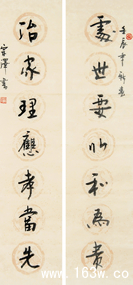 處世要以和為貴
壬辰年秋書
治家理應孝當先
www.163w.com